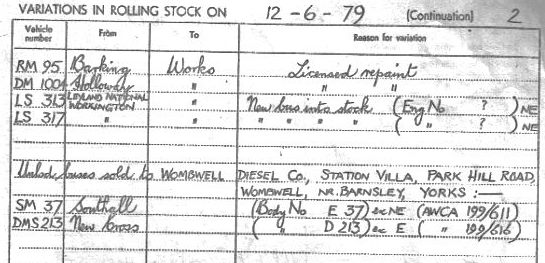 VARIATIONS IN ROLLING STOCK ON 12-6-79 (Continuation) 2
Vehicle number From To Reason for variation
RM 95 Barking Works Licensed repaint
DM 1004 Holloway " " "
LS 313 LEYLAND NATIONAL WORKINGTON " New bus into stock (Eng No ? ) NE
LS 317 " " " " " " ( " ? ) NE
Unlscd buses sold to WOMBWELL DIESEL Co., STATION VILLA, PARK HILL ROAD,
WOMBWELL, NR. BARNSLEY, YORKS :—
SM 37 Southall (Body No E 37) ex NE (AWCA 199/611)
DMS 213 New Cross ( " D 213) ex E ( " 199/616)